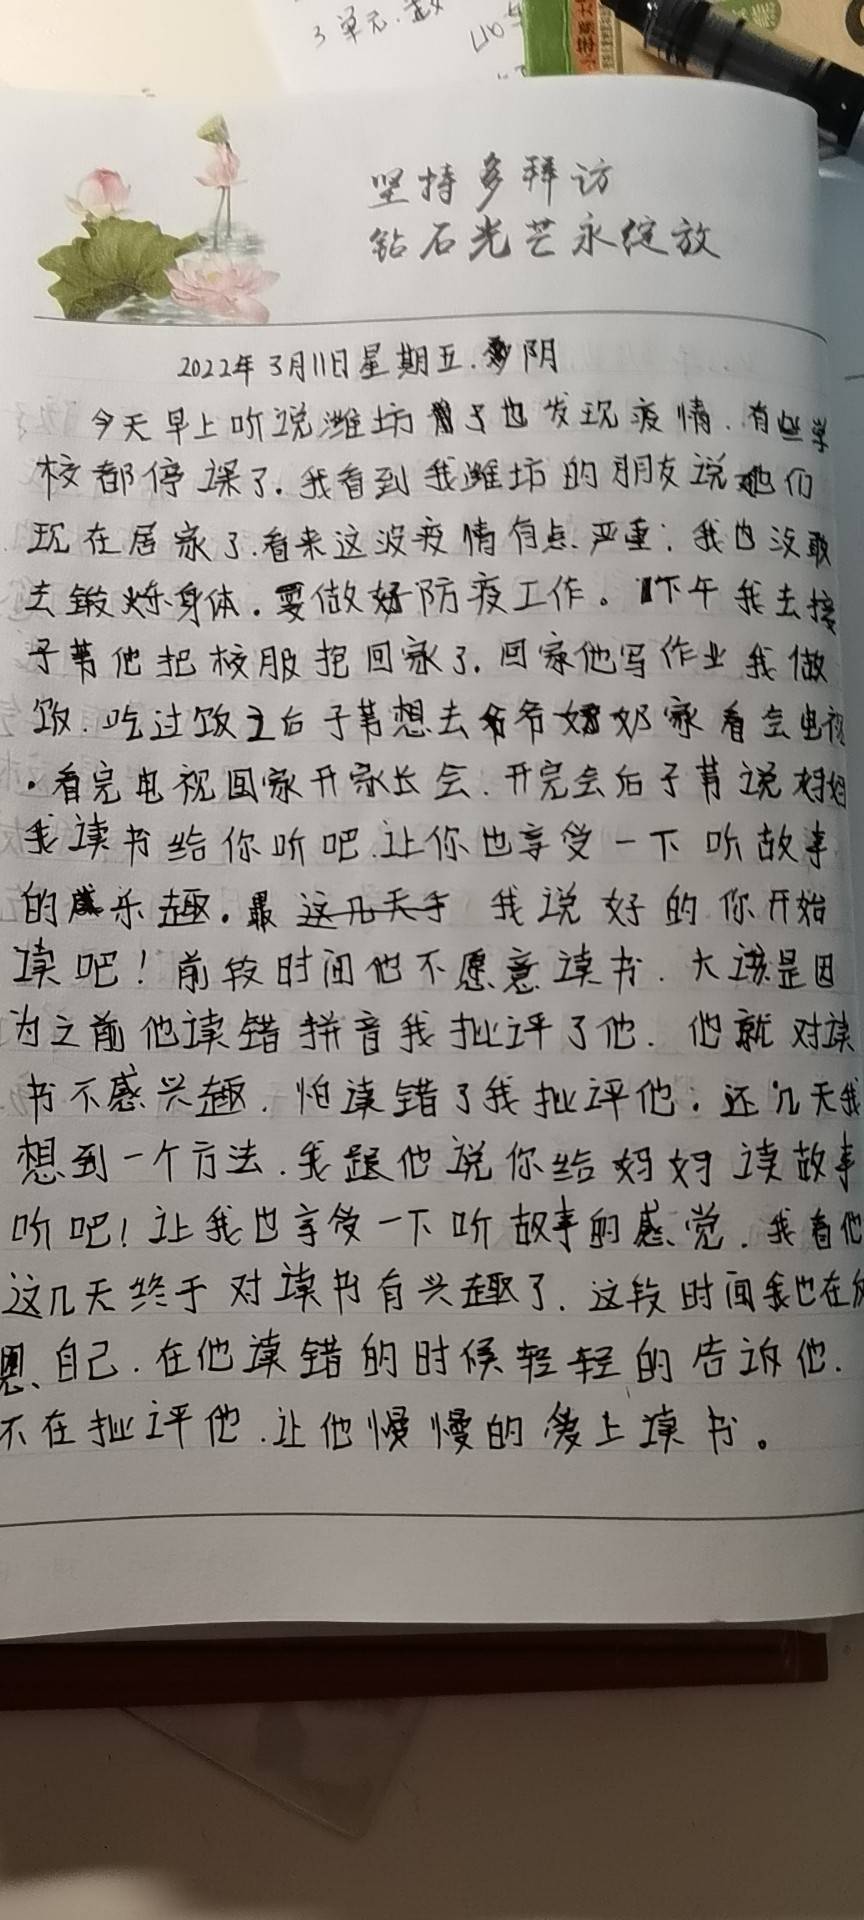 3单元.
坚持多拜访
钻石光芒永绽放
2022年3月11日星期五.阴
今天早上听说潍坊也发现疫情.有些学
校都停课了.我看到我潍坊的朋友说她们
现在居家了.看来这波疫情有点严重;我也没敢
去锻炼身体.要做好防疫工作。下午我去接
子苒他把校服抱回家了.回家他写作业我做
饭.吃过饭之后子苒想去爷爷奶奶家看会电视
.看完电视回家开家长会.开完会后子苒说妈妈
我读书给你听吧.让你也享受一下听故事
的乐趣。最这几天子我说好的你开始
读吧!前段时间他不愿意读书.大该是因
为之前他读错拼音我批评了他.他就对读
书不感兴趣.怕读错了我批评他.还几天我
想到一个方法.我跟他说你给妈妈读故事
听吧!让我也享受一下听故事的感觉.我看他
这几天终于对读书有兴趣了.这段时间我也在反
思、自己.在他读错的时候轻轻的告诉他.
不在批评他.让他慢慢的爱上读书。